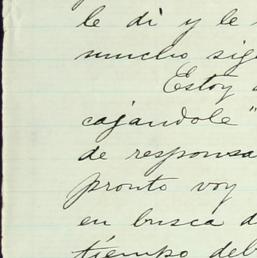 le di y le
mucho sig
Estoy
cajandole "
de responsa
pronto voy
en busca d
tiempo deb